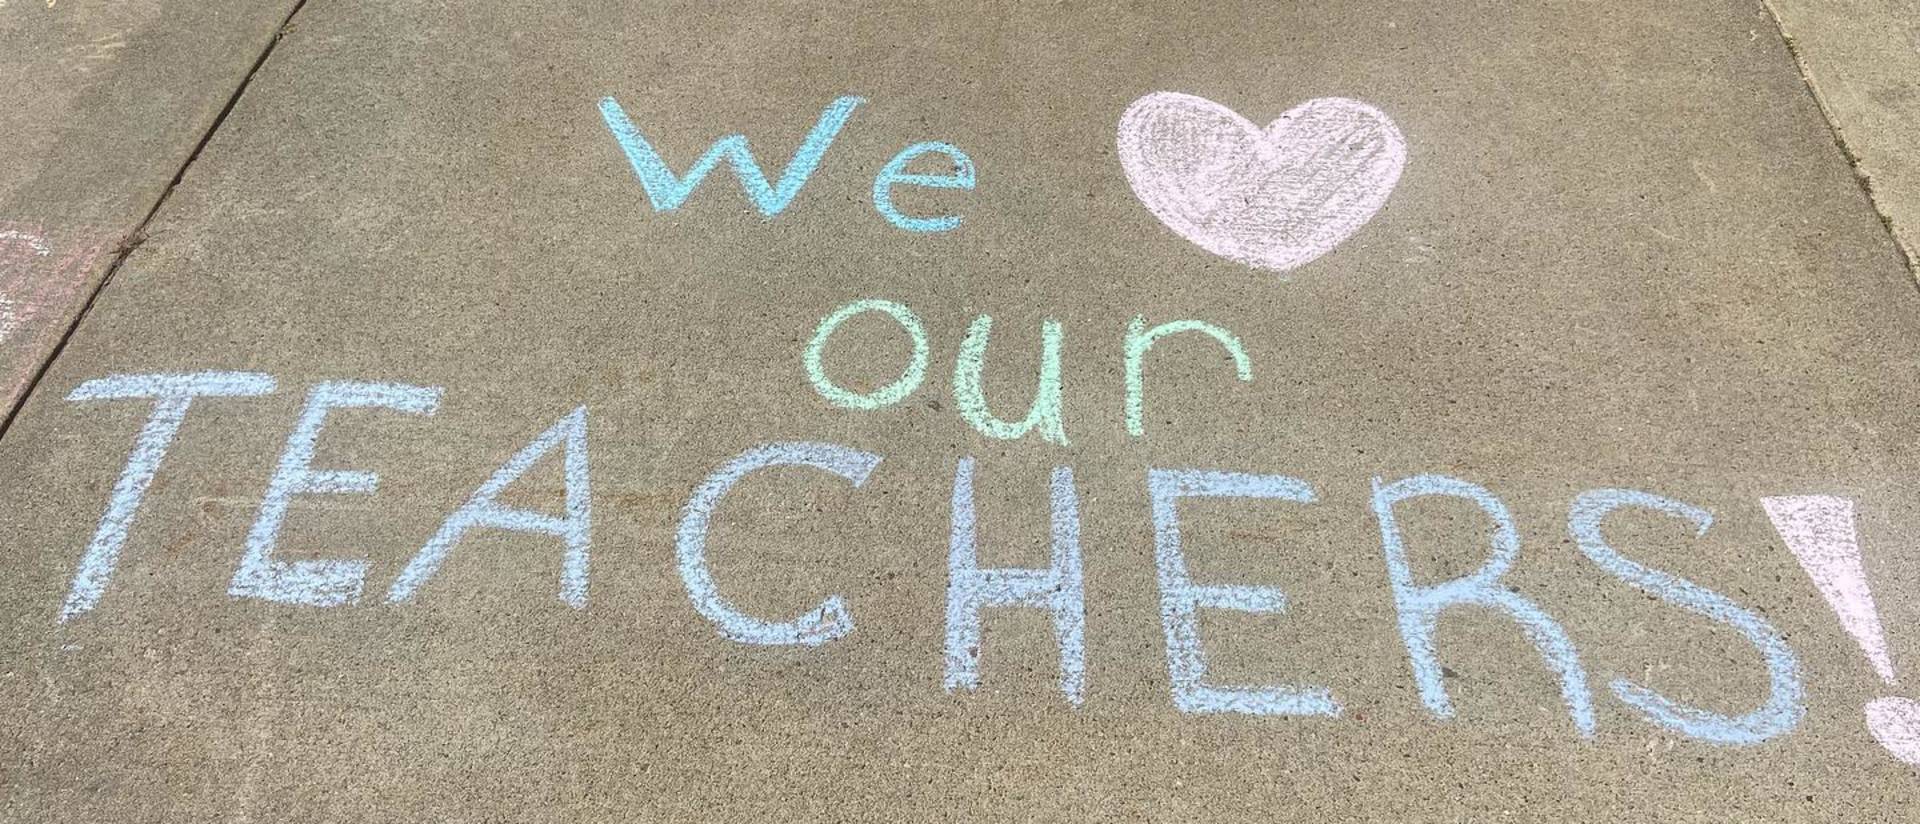 We ❤ our
TEACHERS!